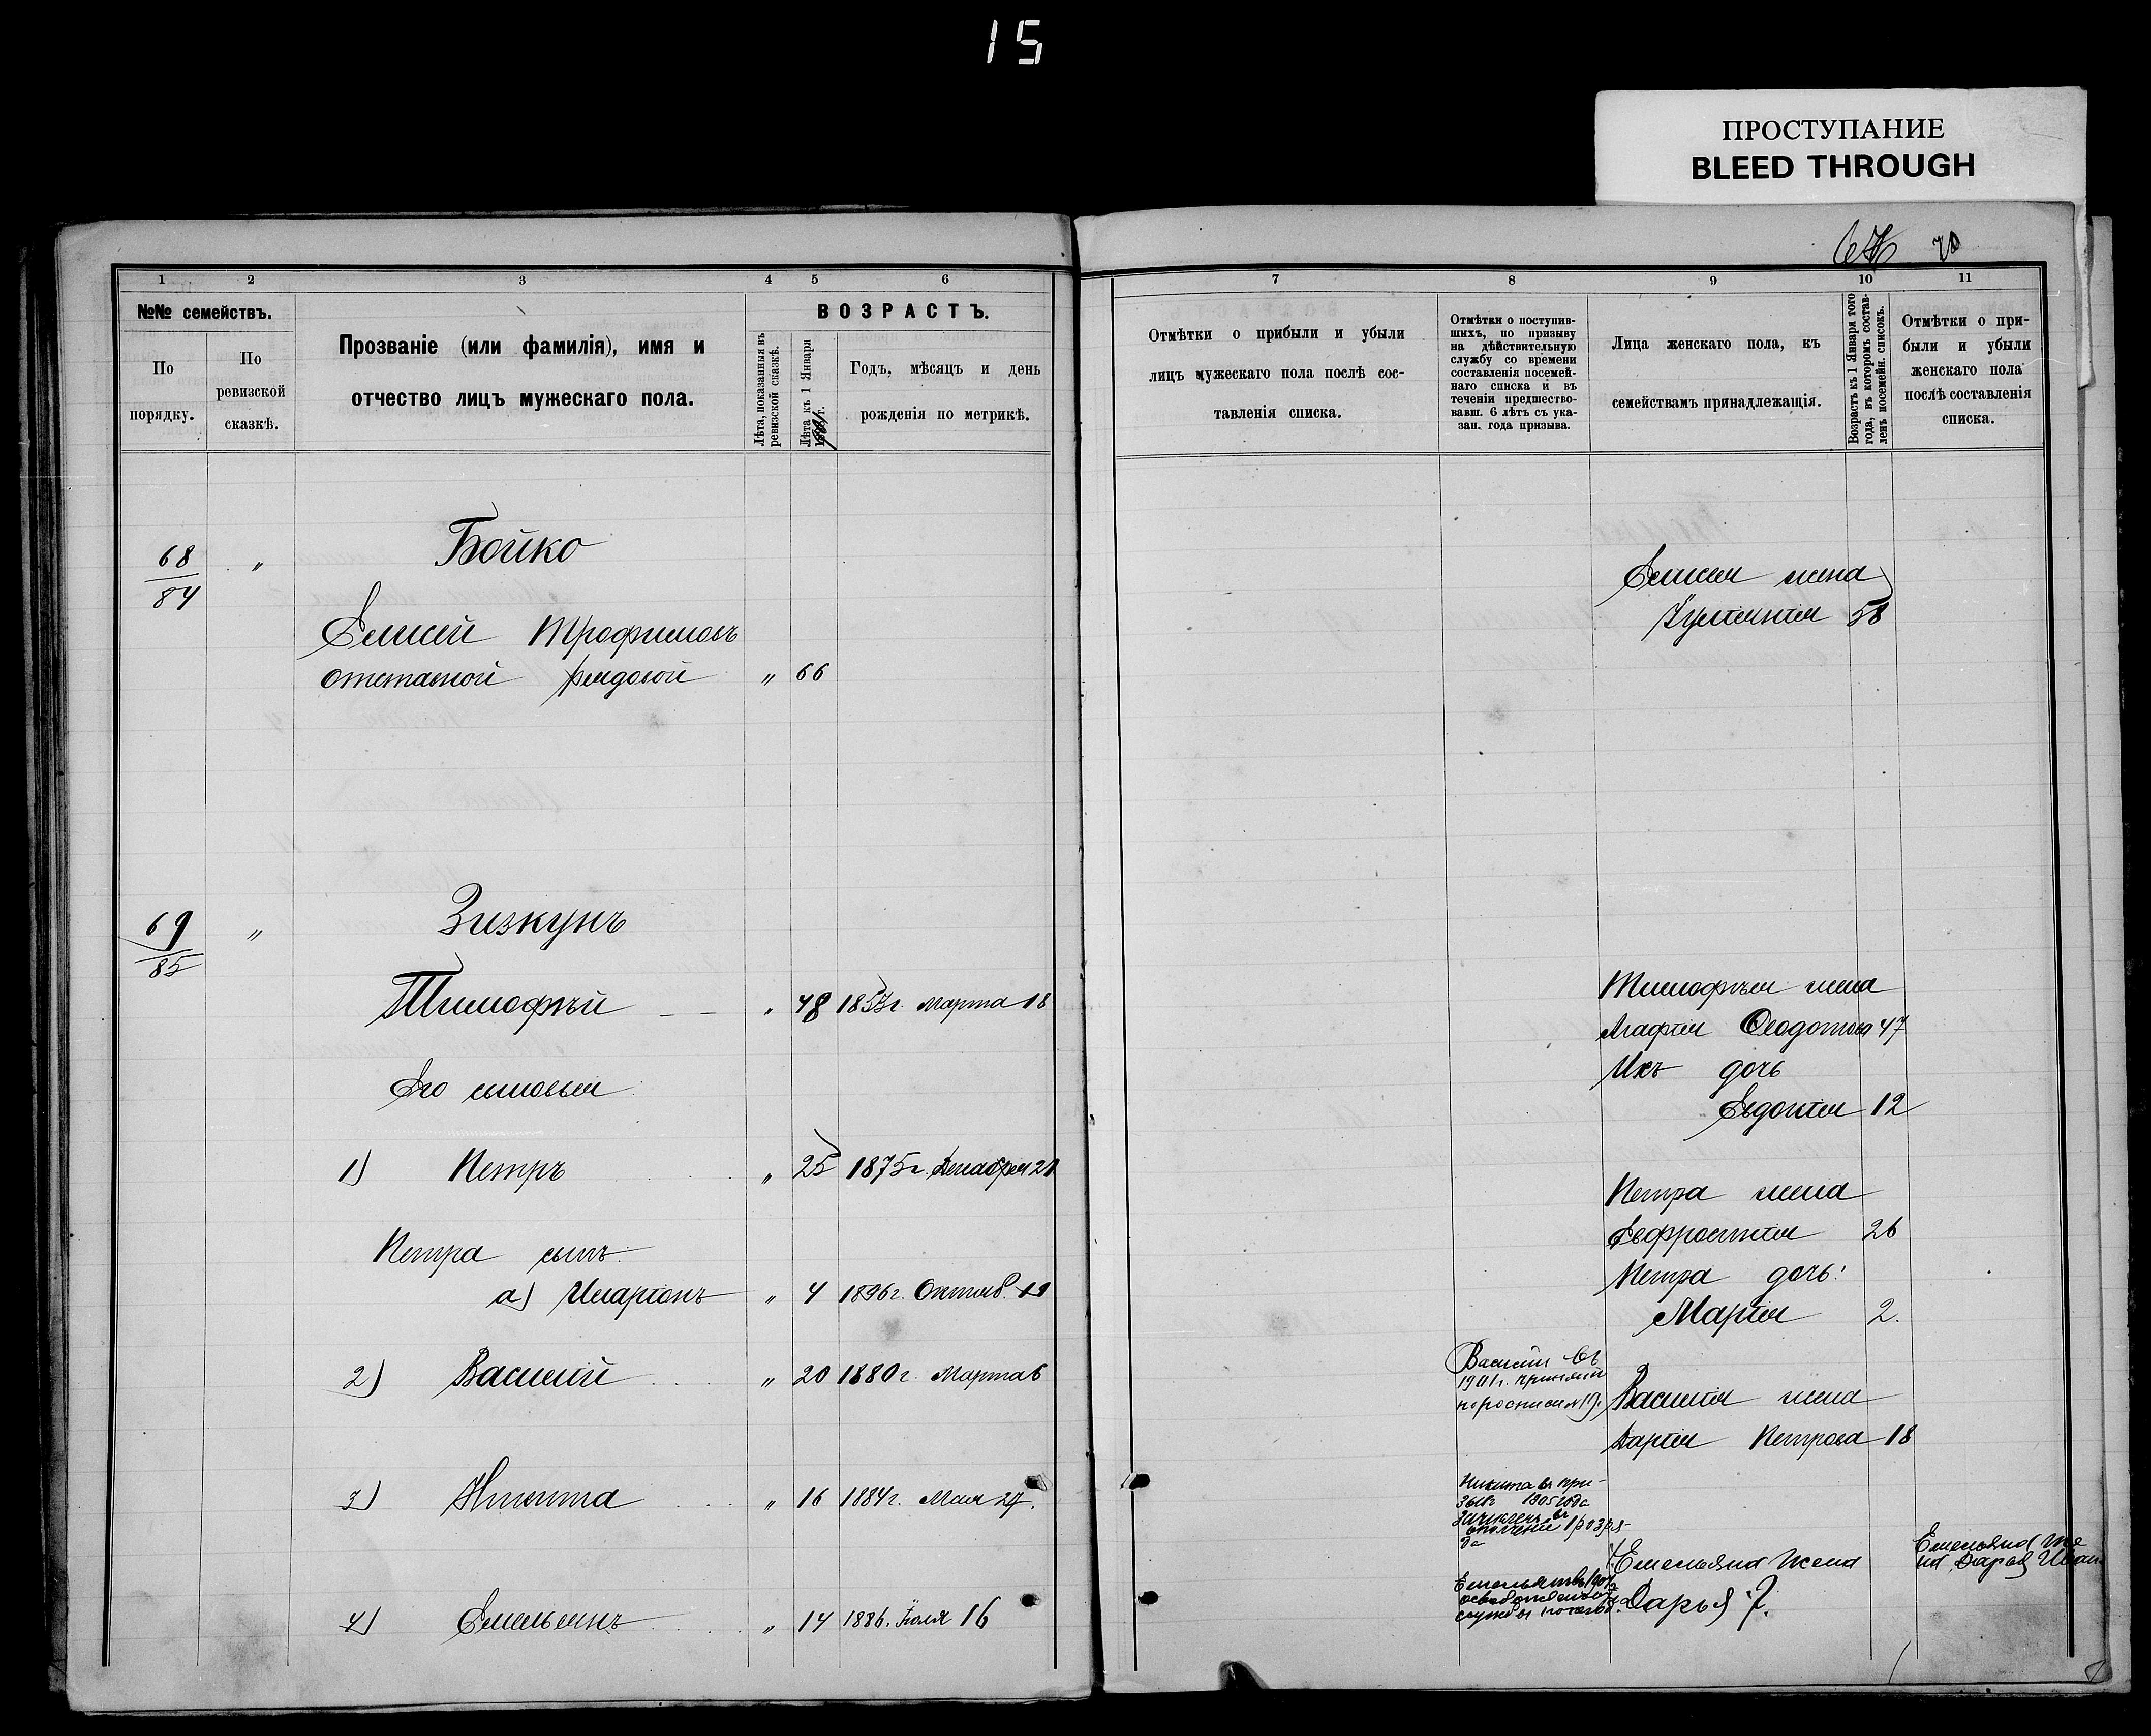 15
ПРОСТУПАНИЕ
BLEED THROUGH
70
1 2 3 4 5 6
№№ семействъ.
По порядку.
По ревизской сказкѣ.
Прозваніе (или фамилія), имя и
отчество лицъ мужескаго пола.
ВОЗРАСТЪ.
Лѣта, показанныя въ
ревизской сказкѣ.
Лѣта къ 1 Января
Годъ, мѣсяцъ и день
рожденія по метрикѣ.
68
84
„
Бойко
Елисей Трофимовъ
отставной рядовой „ 66
69
85
„
Зизкунъ
Тимофѣй „ 48 1853г. Марта 18
Его сыновья:
1) Петръ „ 25 1875г. Декабря 21
Петра сынъ:
а) Иларіонъ „ 4 1896г. Октяб. 19
2) Василій „ 20 1880г. Марта 6
3) Никита „ 16 1884г. Мая 27.
4) Емельянъ „ 14 1886. Іюля 16
7 8 9 10 11
Отмѣтки о прибыли и убыли
лицъ мужескаго пола послѣ сос-
тавленія списка.
Отмѣтки о поступив-
шихъ, по призыву
на дѣйствительную
службу со времени
составленія посемей-
наго списка и въ
теченіи предшество-
вавш. 6 лѣтъ съ ука-
зан. года призыва.
Лица женскаго пола, къ
семействамъ принадлежащія.
Возрастъ къ 1 Января того
года, въ которомъ состав-
ленъ посемейн. списокъ.
Отмѣтки о при-
были и убыли
женскаго пола
послѣ составленія
списка.
Елисея жена
Іустинія 58
Тимофѣя жена
Агафія Ѳеодотова 47
Ихъ дочь
Евдокія 12
Петра жена
Евфросинія 26
Петра дочь:
Марія 2.
Василій въ
1901г. принятъ
по росписи № 19.
Василія жена
Дарія Петрова 18
Никита въ при-
зывъ 1905 года
зачисленъ въ
ополченіе 1 разря-
да
Емельянъ
службы
Емельяна жена
Дарья
Емельяна же
на Дарья